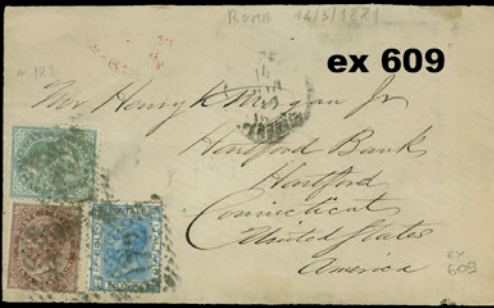 ROMA 14/3/1871
ex 609
n 182
Mr Henry K Morgan Jr
Hartford Bank
Hartford
Connecticut
United States
America
ex
609